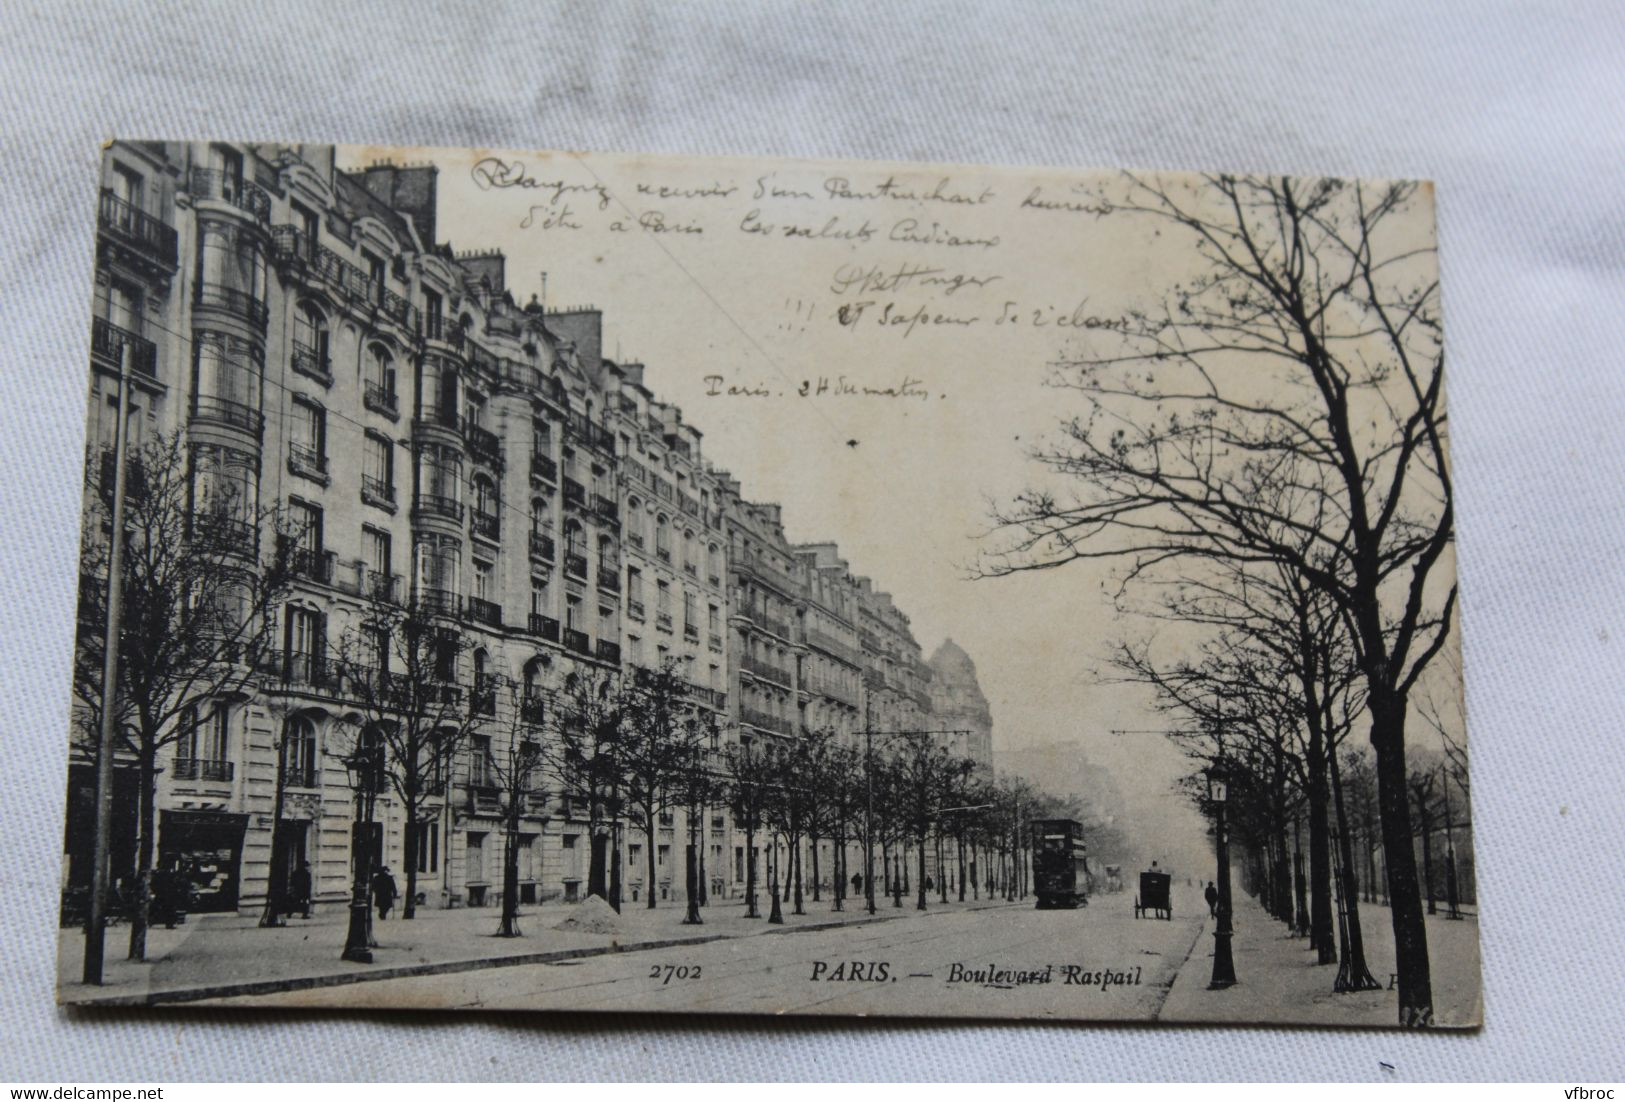 Daignez recevoir d'un Pantruchart heureux
d'être à Paris les saluts Cordiaux
!!! Sapeur de 2e classe
Paris. 2H du matin.
2702 PARIS. — Boulevard Raspail
delcampe.net
vfbroc